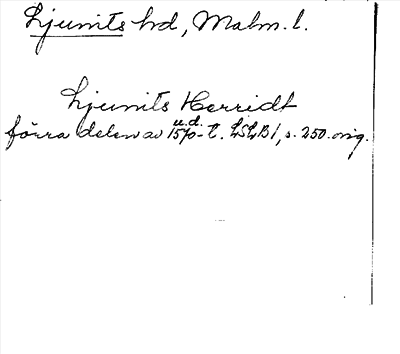 Ljunits hd, Malm. l.
Ljunits Herridt
u. d.
förra delen av 1570-t. LSLB 1, s. 250. orig.